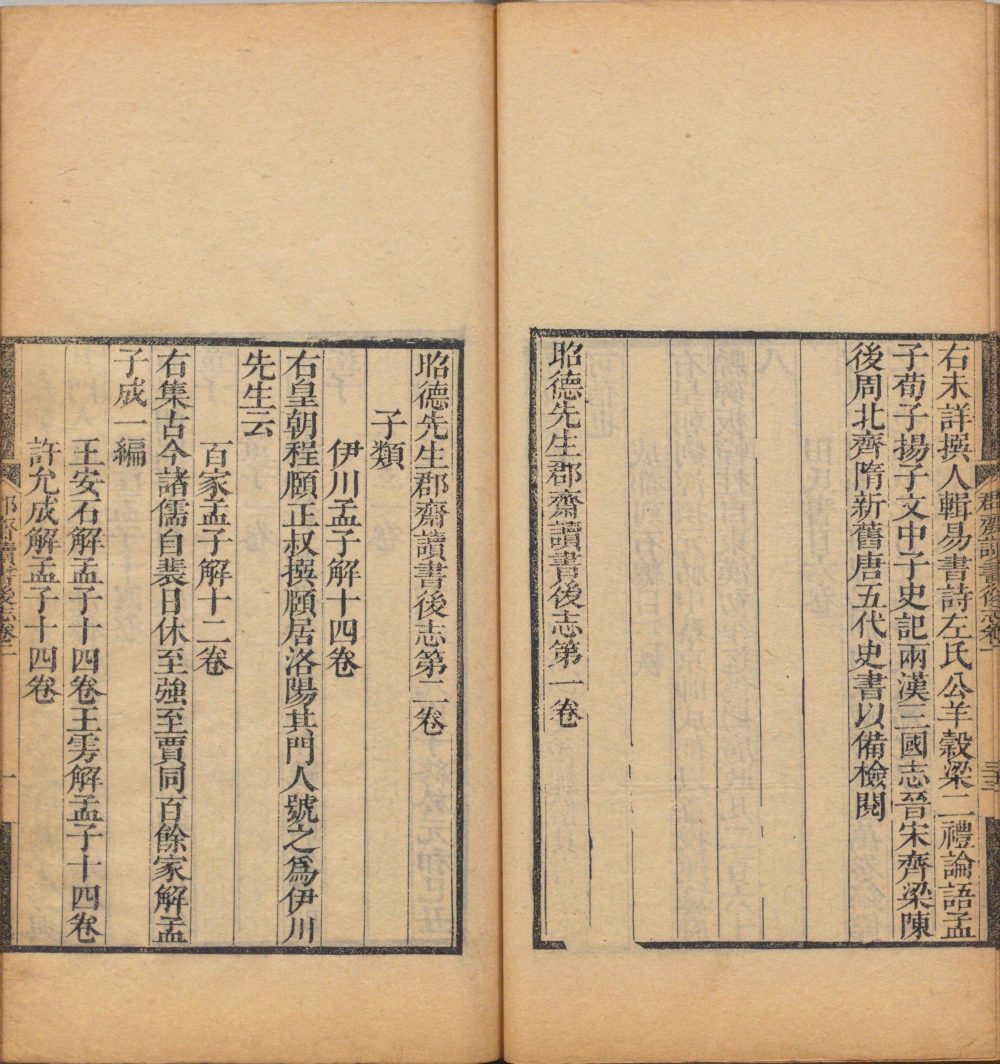 右未詳撰人輯易書詩左氏公羊穀梁二禮論語孟
子荀子揚子文中子史記兩漢三國志晉宋齊梁陳
後周北齊隋新舊唐五代史書以備檢閱
昭德先生郡齋讀書後志第一卷
昭德先生郡齋讀書後志第二卷
子類
伊川孟子解十四卷
右皇朝程頤正叔撰頤居洛陽其門人號之爲伊川
先生云
百家孟子解十二卷
右集古今諸儒自裴日休至強至賈同百餘家解孟
子成一編
王安石解孟子十四卷王雱解孟子十四卷
許允成解孟子十四卷